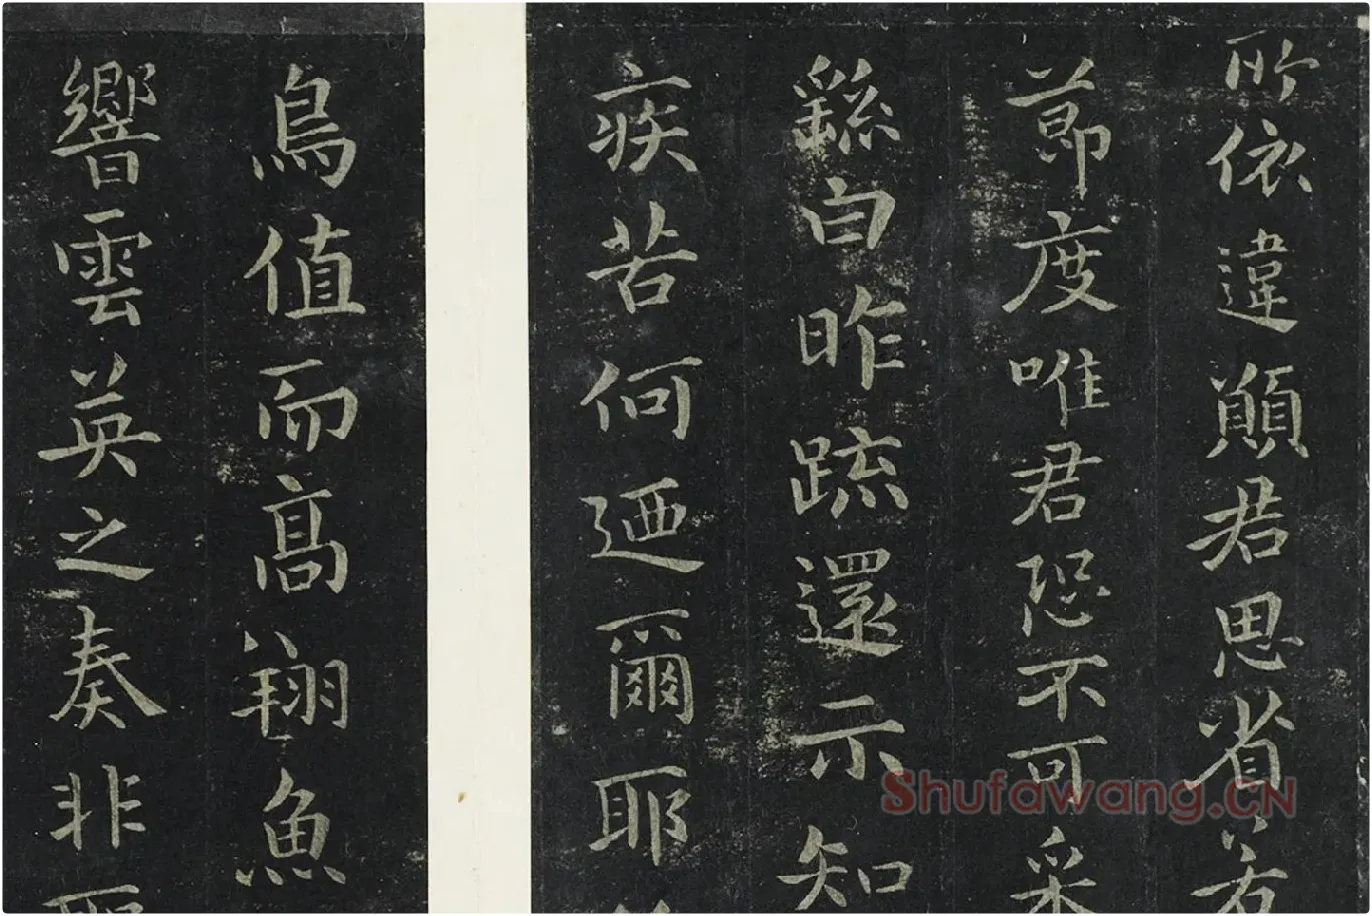 所依違願君思省若
節度唯君恐不可采
繇白昨疏還示知
疾苦何迺爾耶
鳥值而高翔魚
響雲英之奏非
Shufawang.CN